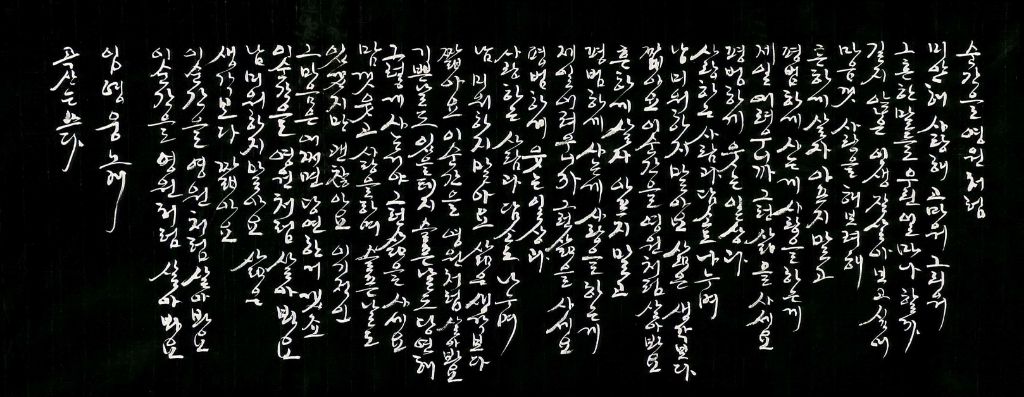 순간을 영원처럼
미안해 사랑해 고마워 그리워
그 흔한 말들을 우린 얼마나 할까
길지 않은 인생 잘 살아보고 싶어
마음껏 사랑을 해보려 해
흔하게 살자 아프지 말고
평범하게 사는게 사랑을 하는게
제일 어려우니까 그런 삶을 사세요
평범하게 웃는 일상과
사랑하는 사람과 담소도 나누며
남 미워하지 말아요 삶은 생각보다
짧아요 이 순간을 영원처럼 살아봐요
흔하게 살자 아프지 말고
평범하게 사는게 사랑을 하는게
제일 어려우니까 그런 삶을 사세요
평범하게 웃는 일상과
사랑하는 사람과 담소도 나누며
남 미워하지 말아요 삶은 생각보다
짧아요 이 순간을 영원처럼 살아봐요
기쁜날도 있을테지 슬픈날도 당연해
그렇게 사는거야 그런 삶을 사세요
맘껏 웃고 사랑을 하며 슬픈날도
있겠지만 괜찮아요 이기적인
그 마음은 어쩌면 당연한거겠죠
이 순간을 영원처럼 살아봐요
남 미워하지 말아요 삶은
생각보다 짧아요
이 순간을 영원처럼 살아봐요
이 순간을 영원처럼 살아봐요
임영웅 노래
쓰다